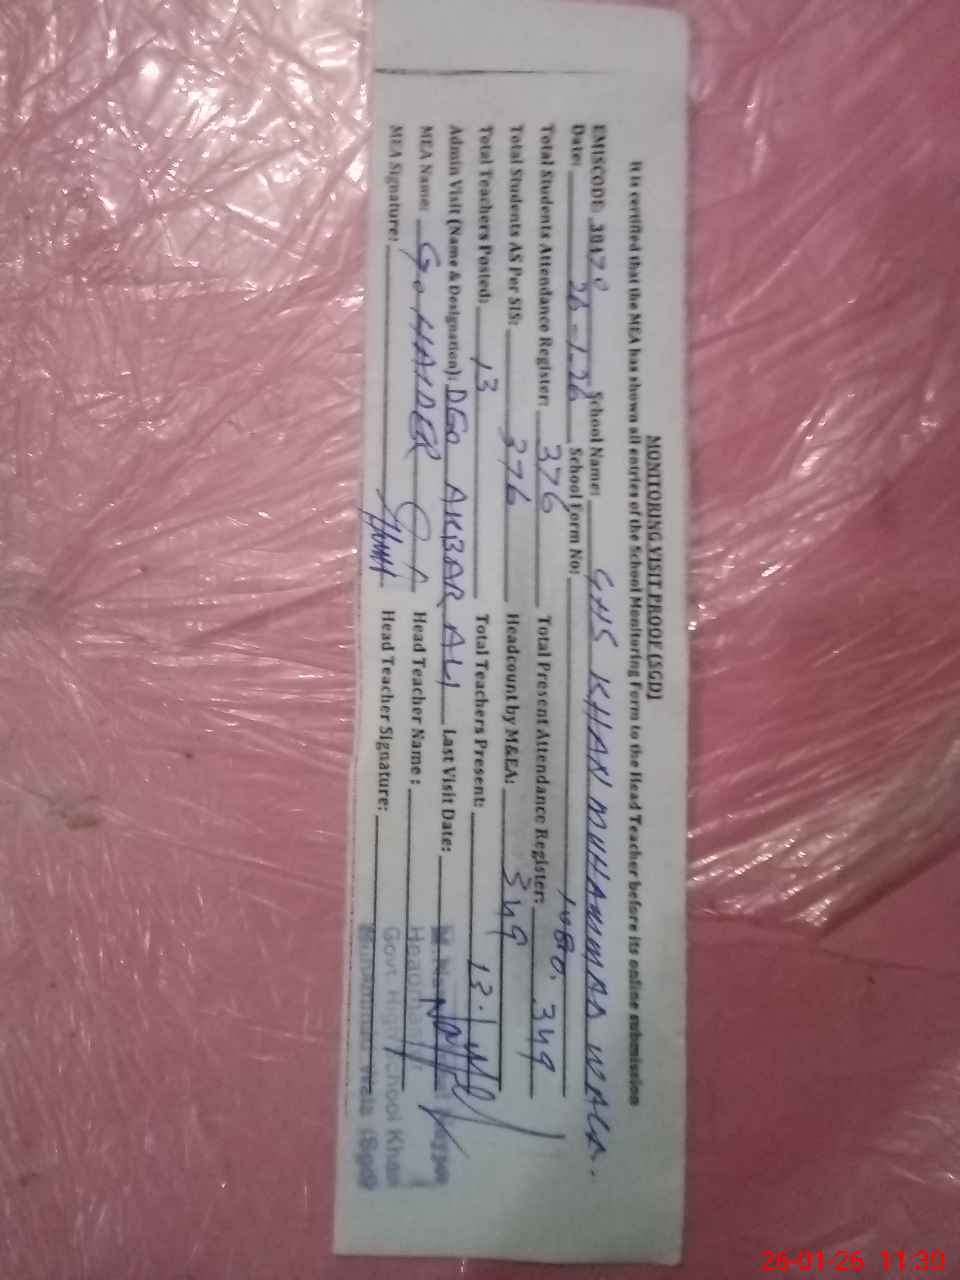 MONITORING VISIT PROOF (SGD)
It is certified that the MEA has shown all entries of the School Monitoring Form to the Head Teacher before its online submission
EMISCODE: School Name: GHS KHAN MUHAMMAD WALA.
Date: 26-1-26 School Form No:
Total Students Attendance Register: 376 Total Present Attendance Register: 349
Total Students AS Per SIS: 376 Headcount by M&EA: 349
Total Teachers Posted: 13 Total Teachers Present:
Admin Visit (Name & Designation): DEO AKBAR ALI Last Visit Date:
MEA Name: G. HAIDER Head Teacher Name :
MEA Signature: Head Teacher Signature:
Govt High School Khan
Muhammad Wala (Sgd)
26-01-26 11:30